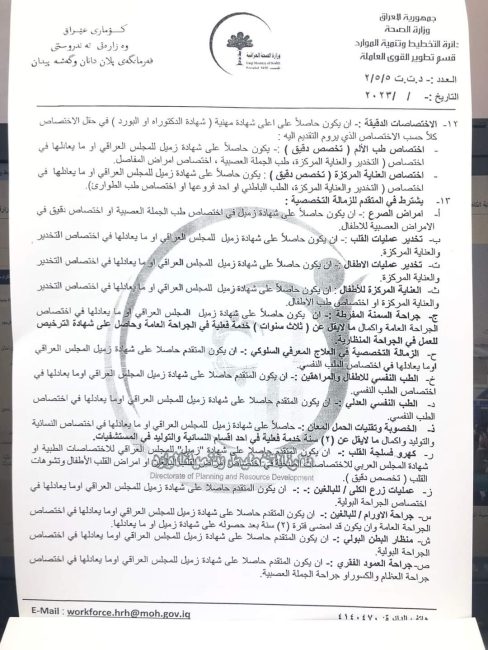 جمهورية العراق
وزارة الصحة
دائرة التخطيط وتنمية الموارد
قسم تطوير القوى العاملة
كۆماری عێراق
وەزارەتی تەندروستی
فەرمانگەی پلان دانان وگەشە پیدان
وزارة الصحة العراقية
Iraqi Ministry of Health
العدد :- د.ت.ت ٢/٥/٥
التاريخ :- / / ٢٠٢٣
١٢- الاختصاصات الدقيقة :- ان يكون حاصلاً على اعلى شهادة مهنية ( شهادة الدكتوراه او البورد ) في حقل الاختصاص
كلاً حسب الاختصاص الذي يروم التقديم اليه :-
- اختصاص طب الألم ( تخصص دقيق ) :- يكون حاصلاً على شهادة زميل للمجلس العراقي او ما يعادلها في
اختصاص ( التخدير والعناية المركزة، طب الجملة العصبية ، اختصاص امراض المفاصل
- اختصاص العناية المركزة ( تخصص دقيق ) : يكون حاصلاً على شهادة زميل للمجلس العراقي او ما يعادلها في
اختصاص ( التخدير والعناية المركزة، الطب الباطني او احد فروعها او اختصاص طب الطوارئ).
١٣- يشترط في المتقدم للزمالة التخصصية :-
أ- امراض الصرع :- ان يكون حاصلاً على شهادة زميل في اختصاص طب الجملة العصبية او اختصاص دقيق في
الامراض العصبية للأطفال.
ب- تخدير عمليات القلب :- ان يكون حاصلاً على شهادة زميل للمجلس العراقي او ما يعادلها في اختصاص التخدير
والعناية المركزة.
ت- تخدير عمليات الاطفال :- ان يكون حاصلاً على شهادة زميل للمجلس العراقي او ما يعادلها في اختصاص التخدير
والعناية المركزة.
ث- العناية المركزة للأطفال : ان يكون حاصلاً على شهادة زميل للمجلس العراقي او ما يعادلها في اختصاص التخدير
والعناية المركزة او اختصاص طب الاطفال.
ج- جراحة السمنة المفرطة :- ان يكون حاصلاً على شهادة زميل المجلس العراقي او ما يعادلها في اختصاص
الجراحة العامة واكمال ما لايقل عن ( ثلاث سنوات ) خدمة فعلية في الجراحة العامة وحاصل على شهادة الترخيص
للعمل في الجراحة المنظارية.
ح- الزمالة التخصصية في العلاج المعرفي السلوكي :- ان يكون المتقدم حاصلا على شهادة زميل المجلس العراقي
اوما يعادلها في اختصاص الطب النفسي.
خ- الطب النفسي للاطفال والمراهقين :- ان يكون المتقدم حاصلا على شهادة زميل للمجلس العراقي اوما يعادلها في
اختصاص الطب النفسي.
د- الطب النفسي العدلي :- ان يكون المتقدم حاصلا على شهادة زميل للمجلس العراقي اوما يعادلها في اختصاص
الطب النفسي.
ذ- الخصوبة وتقنيات الحمل المعان :- ان يكون المتقدم حاصلا على شهادة زميل او ما يعادلها في اختصاص النسائية
والتوليد واكمال ما لايقل عن (٢) سنة خدمة فعلية في احد اقسام النسائية والتوليد في المستشفيات.
ر- كهرو فسلجة القلب :- ان يكون المتقدم حاصلا على شهادة "زميل" للمجلس العراقي للاختصاصات الطبية او
شهادة المجلس العربي للاختصاصات او امراض القلب الأطفال وتشوهات
القلب ( تخصص دقيق ).
Directorate of Planning and Resource Development
ز- عمليات زرع الكلى / للبالغين :- ان يكون المتقدم حاصلا على شهادة زميل للمجلس العراقي اوما يعادلها في
اختصاص الجراحة البولية.
س- جراحة الاورام / للبالغين :- ان يكون المتقدم حاصلا على شهادة زميل للمجلس العراقي اوما يعادلها في اختصاص
الجراحة العامة وان يكون قد امضى فترة (٢) سنة بعد حصوله على شهادة زميل او ما يعادلها.
ش- منظار البطن البولي :- ان يكون المتقدم حاصلا على شهادة زميل للمجلس العراقي اوما يعادلها في اختصاص
الجراحة البولية.
ص- جراحة العمود الفقري :- ان يكون المتقدم حاصلا على شهادة زميل للمجلس العراقي اوما يعادلها في اختصاص
جراحة العظام والكسور او جراحة الجملة العصبية.
E-Mail : workforce.hrh@moh.gov.iq
هاتف الدائرة: ٤١٤٠٤٧٠